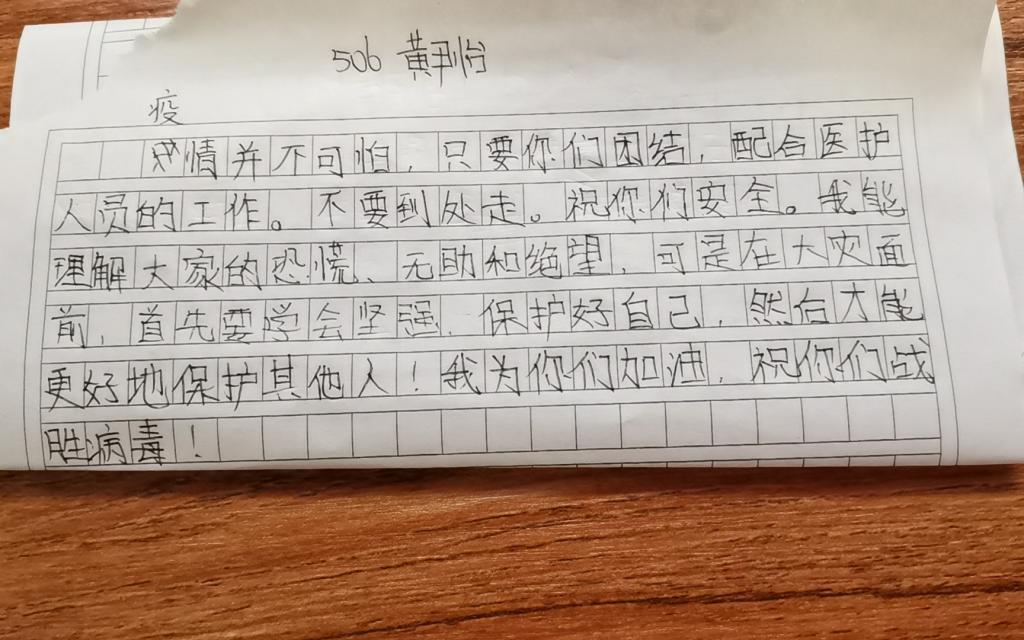 506 黄
疫
情并不可怕，只要你们团结，配合医护
人员的工作。不要到处走。祝你们安全。我能
理解大家的恐慌、无助和绝望，可是在大灾面
前，首先要学会坚强，保护好自己，然后才能
更好地保护其他人！我为你们加油，祝你们战
胜病毒！